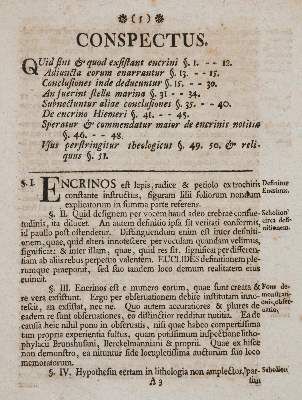 (5)
CONSPECTUS.
QUid sint & quod existant encrini §. 1. - - 12.
Adjuncta eorum enarrantur §. 13. - - 15.
Conclusiones inde deducuntur §. 15. - - 30.
An fuerint stella marina 31 - - 34.
Subnectuntur aliae conclusiones §. 35. - - 40.
De encrino Hiemeri §. 41. - - 45.
Speratur & commendatur maior de encrinis notitia
§. 46. - - 48.
Usus perstringitur theologicus §. 49. 50. & reli-
quus §. 51.
§. I. ENCRINOS est lapis, radice & petiolo ex trochitis Definitur
constante instructus, figuram lilii foliorum nondum Encrinus.
explicatorum in summo potte referens.
§. II. Quid designem per vocem haud adeo crebrae consue- Scholion
tudinis, ita dilucet. An autem definitio ipsa sit veritati conformis, circa defi-
id paullo post ostendetur. Distinguendum enim est inter definiti- nitionem.
onem, quae, quid alteri innotescere per vocem quandam velimus,
significat: & inter illam, quae, quid res sit, significat per differen-
tiam ab aliis rebus perpetuo valentem. EUCLIDES definitionem ple-
rumque praeponit, sed suo tandem loco demum realitatem eius
euincit.
§. III. Encrinos est e numero eorum, quae sunt creata & Fons de-
re vera existunt. Ergo per observationem debite institutam inno-
tescit, an existat, nec ne. Quo autem accuratiores & plures de
eadem re sunt observationes, eo distinctior redditur notitia. Ea de
causa heic nihil ponu in observatis, nisi quae habeo compertissima
tum propria experientia fultus, quam potissimum inspectione litho-
phylacii Brunshusini, Berckelmanniani & proprii. Quae ex hisce
non demonstro, ea nituntur fide locupletissima auctorum suo loco
memoratorum.
§. IV. Hypothesin certam in lithologia non amplector, par- Scholion.
A3 sim